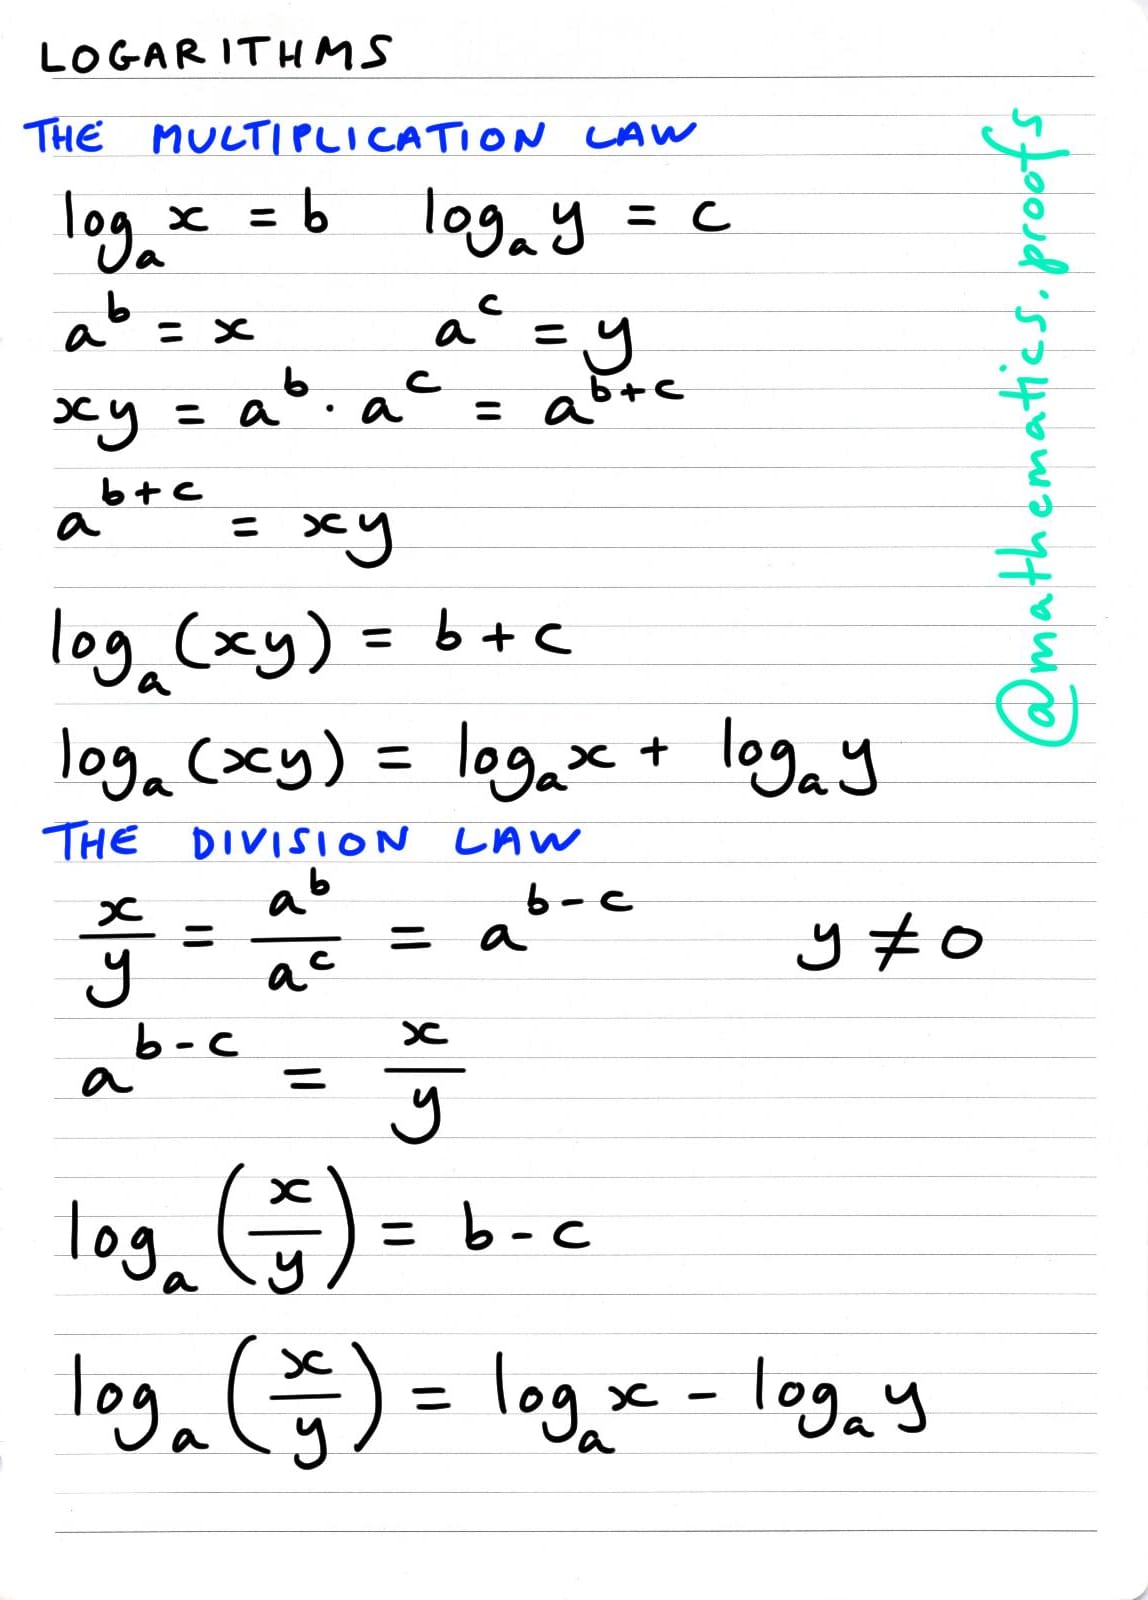 LOGARITHMS
THE MULTIPLICATION LAW
logₐ x = b   logₐ y = c
aᵇ = x   aᶜ = y
xy = aᵇ · aᶜ = aᵇ⁺ᶜ
aᵇ⁺ᶜ = xy
logₐ (xy) = b + c
logₐ (xy) = logₐ x + logₐ y
THE DIVISION LAW
x/y = aᵇ/aᶜ = aᵇ⁻ᶜ   y ≠ 0
aᵇ⁻ᶜ = x/y
logₐ (x/y) = b - c
logₐ (x/y) = logₐ x - logₐ y
@mathematics.proofs